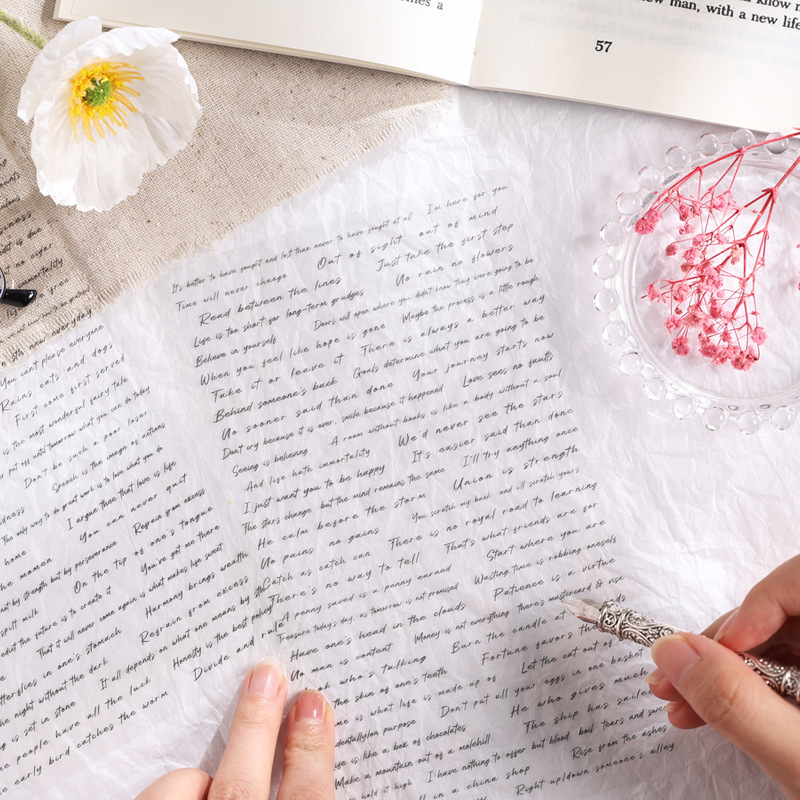 comes a
know
new man, with a new life
57
It's better to have fought and lost than never to have fought at all I'm here for you
Time will never change Out of sight out of mind
Read between the lines Just take the first step
Life is too short for long-term grudges No rain no flowers
Behave in yourself Doors will open where you didn't know they were going to be
When you feel like hope is gone Maybe the process is a little rough
Take it or leave it There is always a better way
Behind someone's back Goals determine what you are going to be
No sooner said than done Your journey starts now
Don't cry because it is over, smile because it happened Love sees no faults
Seeing is believing A room without books is like a body without a soul
And life hath immortality We'd never see the stars
I just want you to be happy It's easier said than done
The stars change but the mind remains the same I'll try anything once
He calm before the storm Union is strength
No pains no gains You scratch my back and i'll scratch yours
Catch as catch can There is no royal road to learning
There's no way to tell That's what friends are for
A penny saved is a penny earned Start where you are
Treasure today's day, as tomorrow is not promised Wasting time is robbing oneself
Have one's head in the clouds Patience is a virtue
No man is content Money is not everything there's mastercard & visa
who's talking Burn the candle at
the skin of one's teeth Fortune favors the
is what life is made up of Let the cat out of
on purpose Don't put all your eggs in one basket
is like a box of chocolates He who gives much
Make a mountain out of a molehill The ship has sailed
hold it high I have nothing to offer but blood boil tears and
in a china shop Rise from the ashes
Right up/down someone's alley
is due
no cigar
immortality
free
everyday
You can't please everyone
Rains cats and dogs
First come first served
is the most wonderful fairy tale
put off until tomorrow what you can do today
Don't be such a poor loser
Speech is the image of actions
The only way to do great work is to love what you do
home I argue then that love is life
the momen You can never quit
not by strength but by perseverance Refrain from excess
spilt milk On the tip of one's tongue
predict the future is to create it You've got me there
That it will never come again is what makes life sweet
butterflies in one's stomach Harmony brings wealth
the night without the dark Refrain from excess
is set in stone It all depends on what one means by
people have all the luck Honesty is the best policy
early bird catches the worm Divide and rule